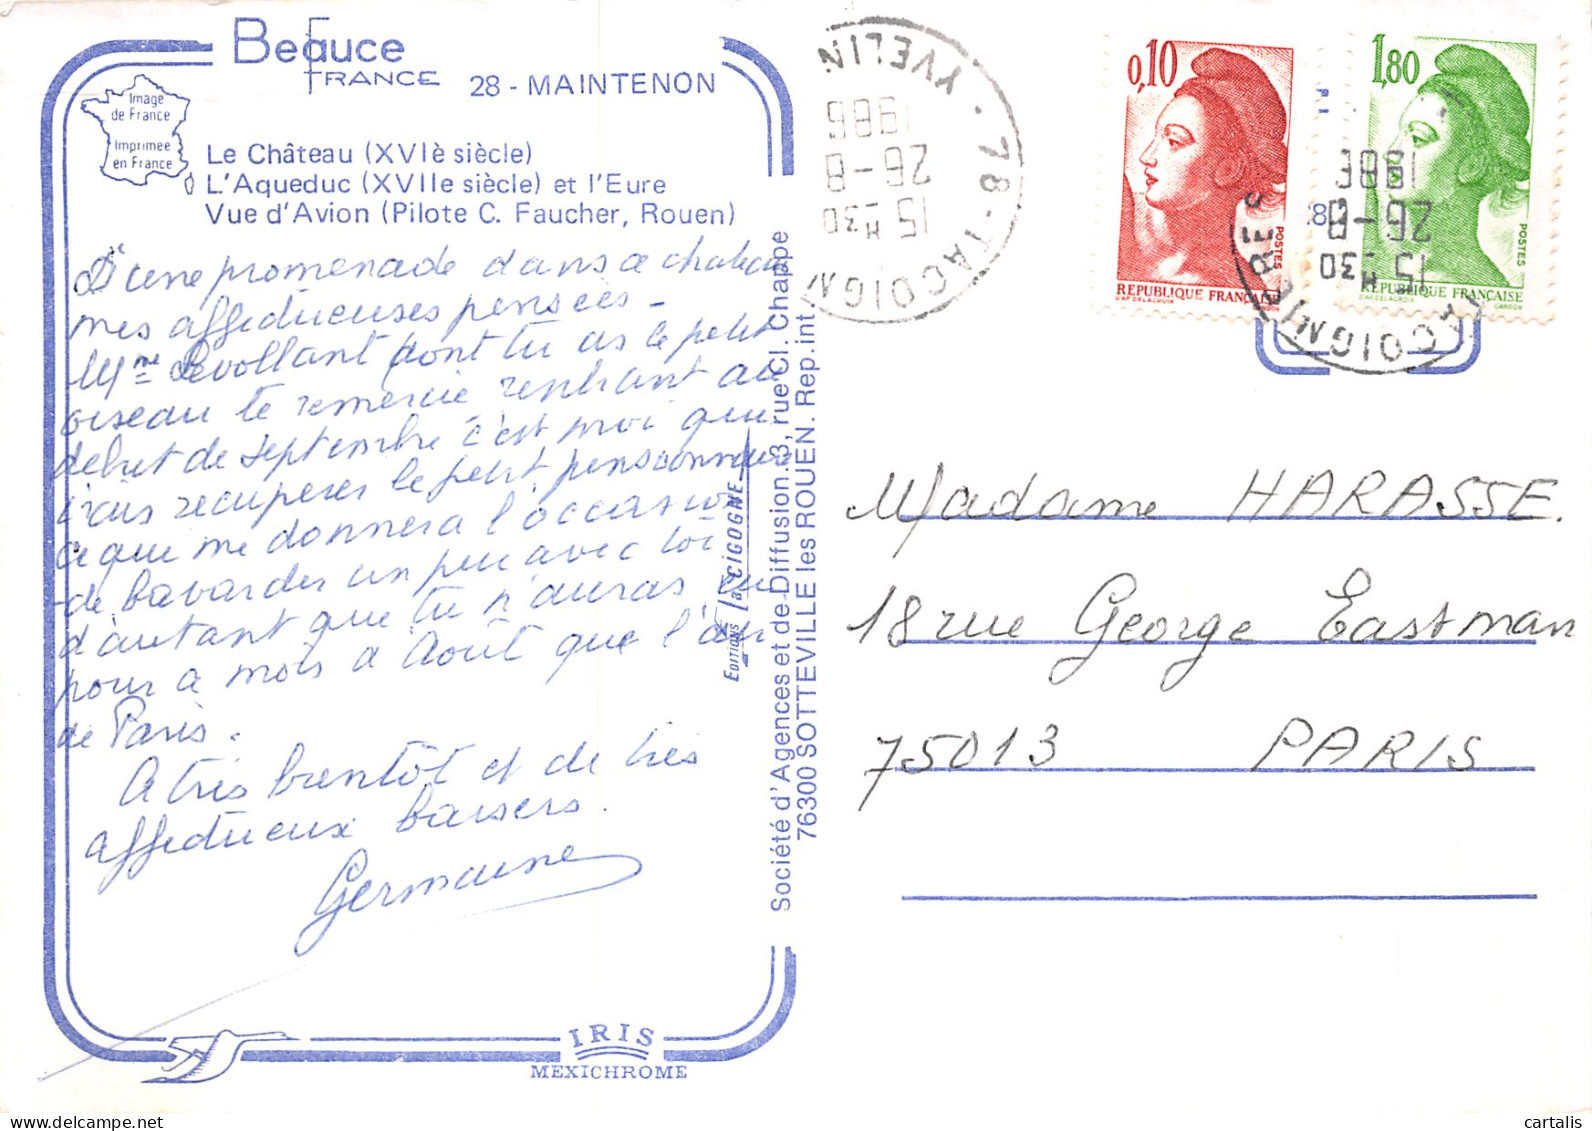 Beauce
FRANCE
28 - MAINTENON
Image
de France
Imprimee
en France
Le Château (XVIè siècle)
L'Aqueduc (XVIIe siècle) et l'Eure
Vue d'Avion (Pilote C. Faucher, Rouen)
D'une promenade dans ce chateau
mes affectueuses pensées -
Mme Revollant dont tu as le petit
oiseau te remercie rentrant au
debut de septembre c'est moi qui
irais recuperer le petit pensionnaire
ce que me donnera l'occasion
de bavarder un peu avec toi
d'autant que tu n'auras eu
pour a mois d'Août que l'air
de Paris.
A très bientôt et de très
affectueux baisers.
Germaine
Editions "La CIGOGNE"
Société d'Agences et de Diffusion. 3, rue Cl. Chappe
76300 SOTTEVILLE les ROUEN. Rep. int.
IRIS
MEXICHROME
78 - TACOIGNI YVELIN
15 H 30
26-8
1986
0,10
POSTES
REPUBLIQUE FRANCAISE
D'AP. DELACROIX GANDON
1,80
POSTES
REPUBLIQUE FRANÇAISE
D'AP. DELACROIX GANDON
15 H 30
26-8
1986
Madame HARASSE.
18 rue George Eastman
75013 PARIS
cartalis